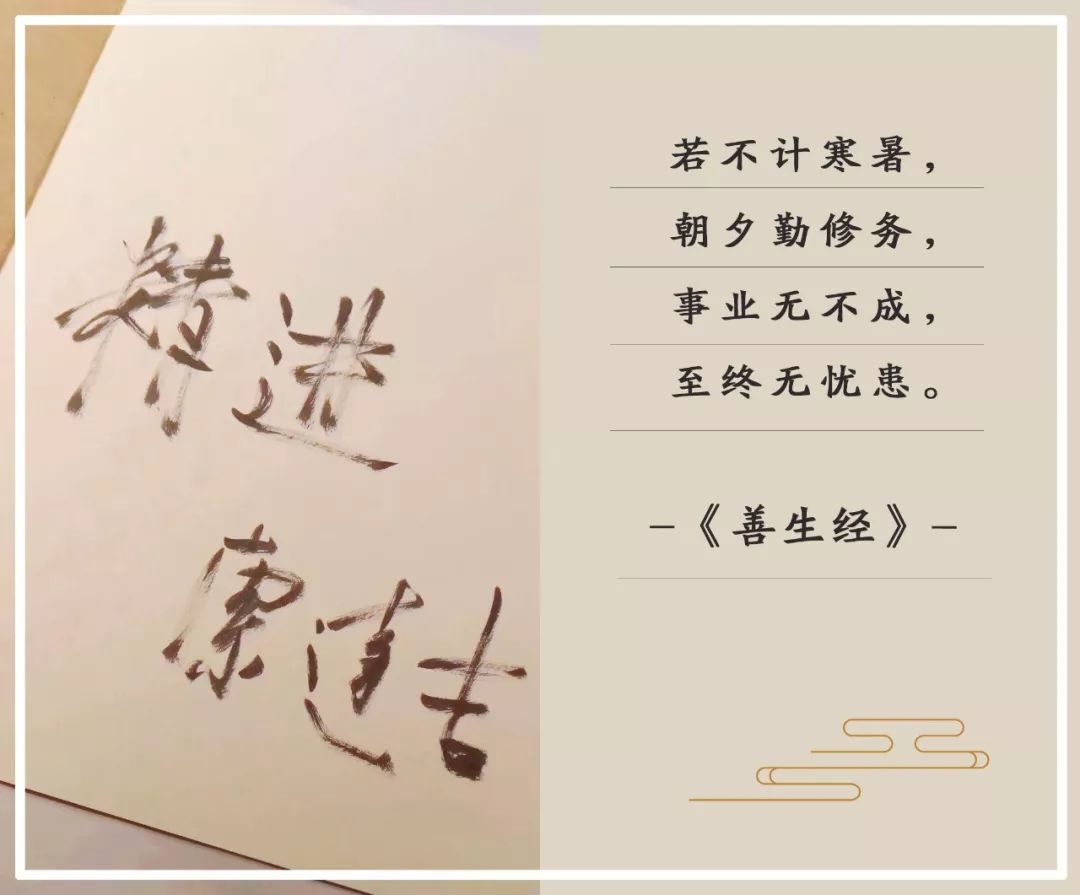 精进
康达吉
若不计寒暑，
朝夕勤修务，
事业无不成，
至终无忧患。
–《善生经》–